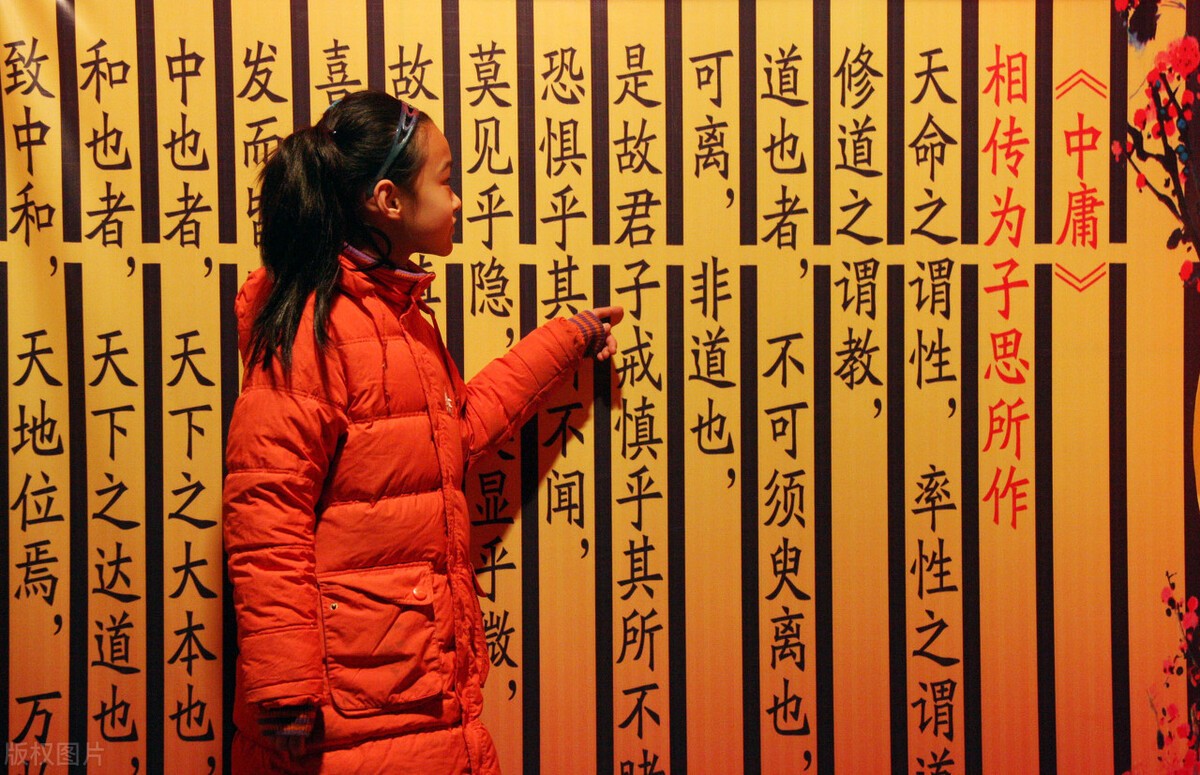 《中庸》
相传为子思所作
天命之谓性，率性之谓道
修道之谓教，
道也者，不可须臾离也，
可离，非道也，
是故君子戒慎乎其所不睹
恐惧乎其不闻，
莫见乎隐，显乎微，
故其
喜
发而皆
中也者，天下之大本也，
和也者，天下之达道也，
致中和，天地位焉，万
版权图片